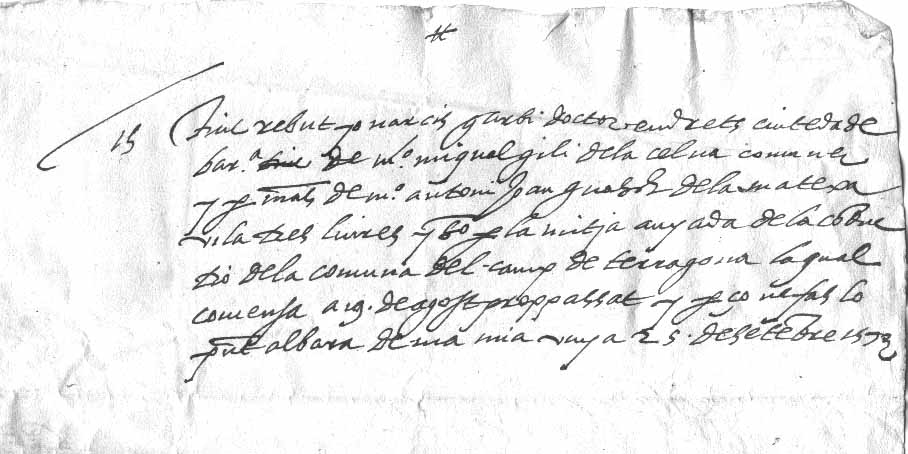 15 Tinc rebut yo narcis garbi doctor en drets ciuteda de
bar.ª de m.º miquel gili dela celva comuner
y p mans de m.º antoni Joan de la matexa
vila tres liures p la mitja anyada de la
tio de la comuna del camp de terragona la qual
comensa a 19. de agost proppassat y p ço ne fas lo
pnt albara de ma mia vuy a 25. de setebre 1573